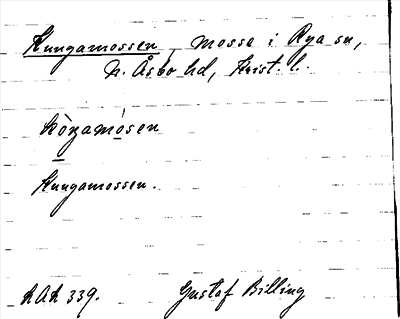 Kungamossen, mosse i Rya sn,
N. Åsbo hd, Krist. l.
kòṉamósen
Kungamossen.
LAL 339. Gustaf Billing